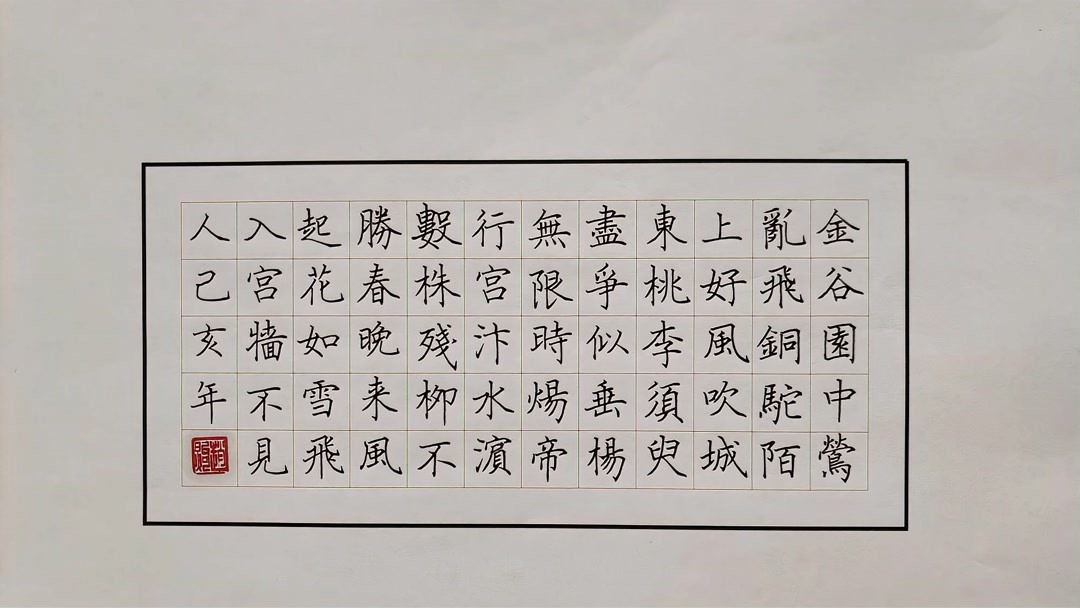 金谷園中鶯
亂飛銅駝陌
上好風吹城
東桃李須臾
盡爭似垂楊
無限時煬帝
行宫汴水濱
數株殘柳不
勝春晚来風
起花如雪飛
入宫牆不見
人己亥年